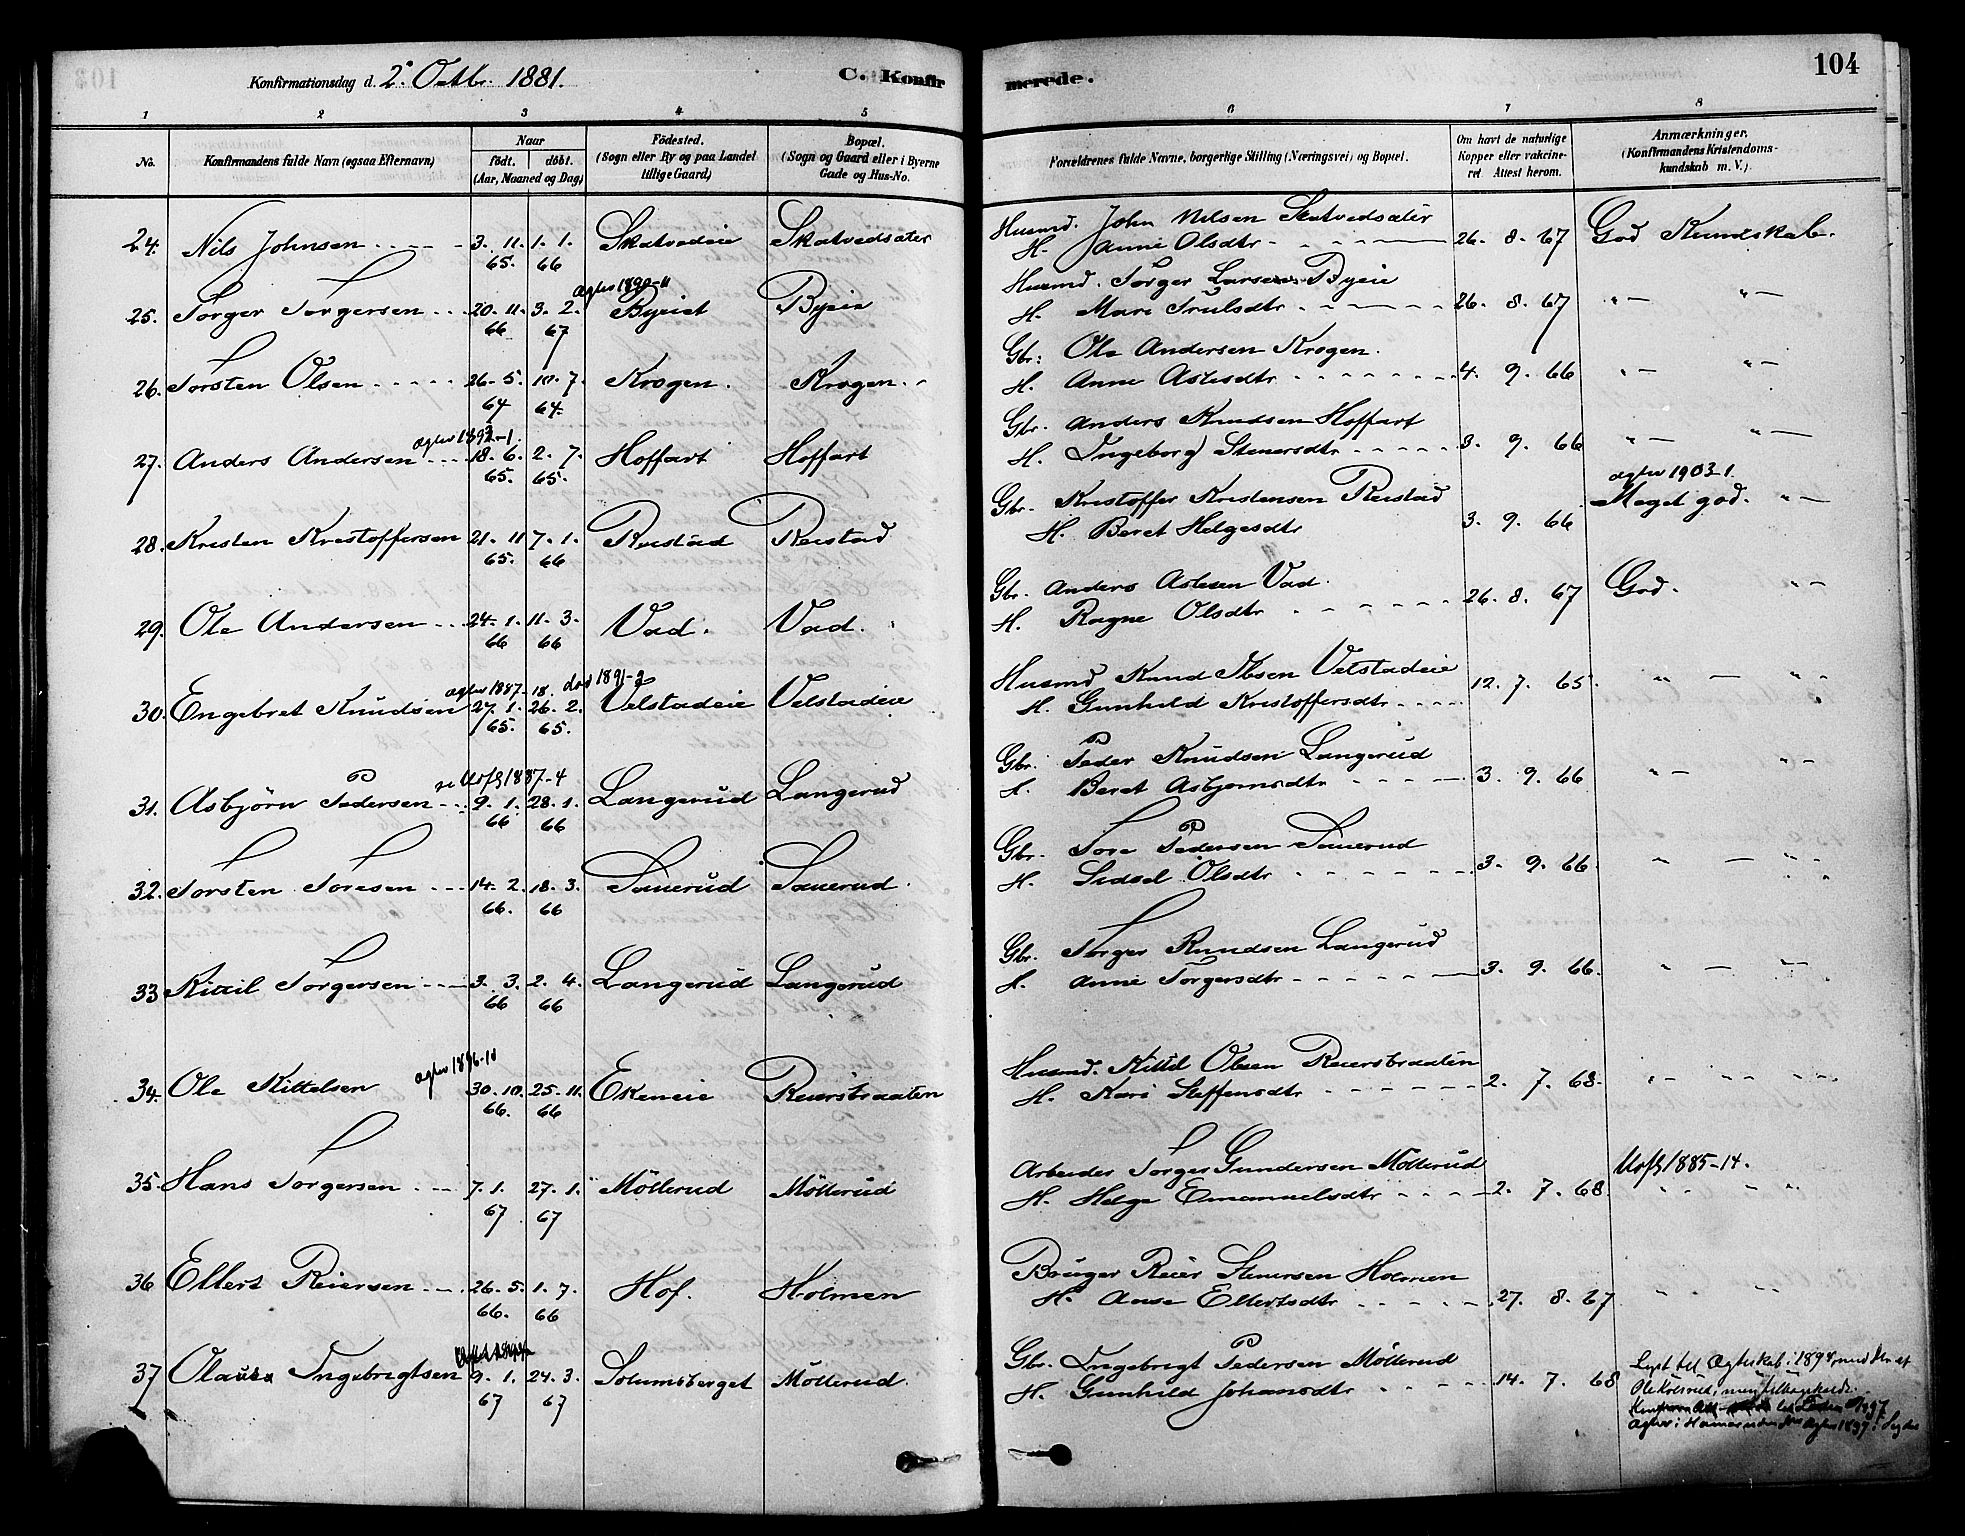 104
Konfirmationsdag d. 2. Octbr. 1881.
C. Konfirmerede.
1 2 3 4 5 6 7 8
No.
Konfirmandens fulde Navn (ogsaa Efternavn)
Naar
födt. döbt.
(Aar, Maaned og Dag)
Födested.
(Sogn eller By og paa Landet
tillige Gaard)
Bopæl.
(Sogn og Gaard eller i Byerne
Gade og Hus-No.
Forældrenes fulde Navne, borgerlige Stilling (Næringsvei) og Bopæl.
Om havt de naturlige
Kopper eller vakcine-
ret. Attest herom.
Anmærkninger.
(Konfirmandens Kristendoms-
kundskab m. V.).
24. Nils Johnsen 3. 11. 65. 1. 1. 66 Skatvedeie Skatvedsæter
Husmd. John Nilsen Skatvedsæter
H. Anne Olsdtr 26. 8. 67 God Kundskab.
25. Torger Torgersen 20. 11. 66 3. 2. 67 Byeiet Byeie
Husmd. Torger Larsen Byeie
H. Mari Trulsdtr 26. 8. 67 " — " —
26. Torsten Olsen 26. 5. 64 10. 7. 64. Krogen. Krogen
Gbr. Ole Andersen Krogen.
H. Anne Aslesdtr 4. 9. 66 " — " —
27. Anders Andersen 18. 6. 65. 2. 7. 65. Hoffart Hoffart
Gbr. Anders Knudsen Hoffart
H. Ingeborg Stenersdtr 3. 9. 66 " — " —
28. Kristen Kristoffersen 21. 11 65. 7. 1. 66 Reistad Reistad
Gbr. Kristoffer Kristensen Reistad
H. Beret Helgesdtr 3. 9. 66
agtev 1903-1.
Meget god. " —
29. Ole Andersen 24. 1. 66 11. 3. 66 Vad. Vad.
Gbr. Anders Aslesen Vad.
H. Ragne Olsdtr 26. 8. 67 God. " —
agtev 1887-18. död 1891-2
30. Engebret Knudsen 27. 1. 65. 26. 2. 65. Velstadeie Velstadeie
Husmd Knud Ibsen Velstadeie
H. Gunhild Kristoffersdtr 12. 7. 65. " — " —
31. Asbjörn Pedersen 9. 1. 66 28. 1. 66 Langerud Langerud
Gbr. Peder Knudsen Langerud
H. Beret Asbjørnsdtr 3. 9. 66 " — " —
32. Torsten Toresen 14. 2. 66. 18. 3. 66 Sauerud Sauerud.
Gbr. Tore Pedersen Sauerud
H. Sidsel Olsdtr 3. 9. 66. " — " —
33 Kittil Torgersen 3. 3. 66 2. 4. 66 Langerud Langerud
Gbr. Torger Knudsen Langerud
H. Anne Torgersdtr 3. 9. 66. " — " —
agtev 1896-10
34. Ole Kittelsen 30. 10. 66. 25. 11. 66 Ekeneie Reierstraaten
Husmd. Kittil Olsen Reiersbraaten
H. Kari Steffensdtr 2. 7. 68. " — " —
35. Hans Torgersen 7. 1. 67 27. 1. 67 Möllerud Möllerud
Arbeider Torger Gundersen Möllerud
H. Helge Emanuelsdtr 2. 7. 68
Udfl 1885-14.
36 Ellert Reiersen 26. 5. 66. 1. 7. 66 Hof. Holmen
Bruger Reier Stenersen Holmen
H. Anne Ellertsdtr 27. 8. 67
37 Olaus Ingebrigtsen 9. 1. 67 24. 3. 67 Solumsberget Möllerud.
Gbr. Ingebrigt Pedersen Möllerud
H. Gunhild Johansdtr 14. 7. 68